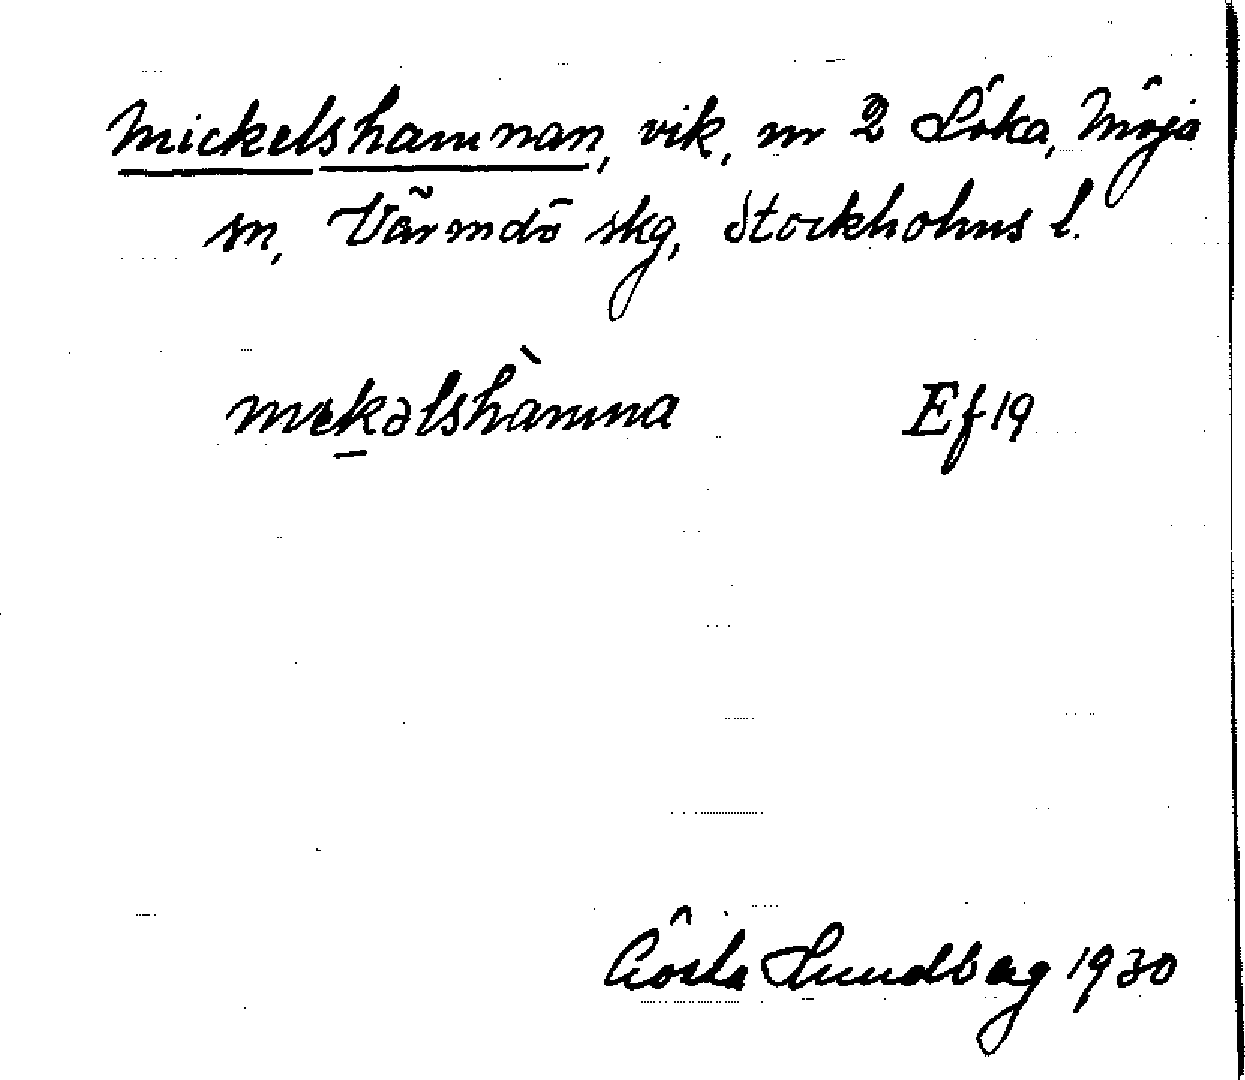 Mickelshamnan, vik, nr 2 Löka, Möja
sn, Värmdö skg, Stockholms l.
mekəlshàmna Ef19
Gösta Lundberg 1930